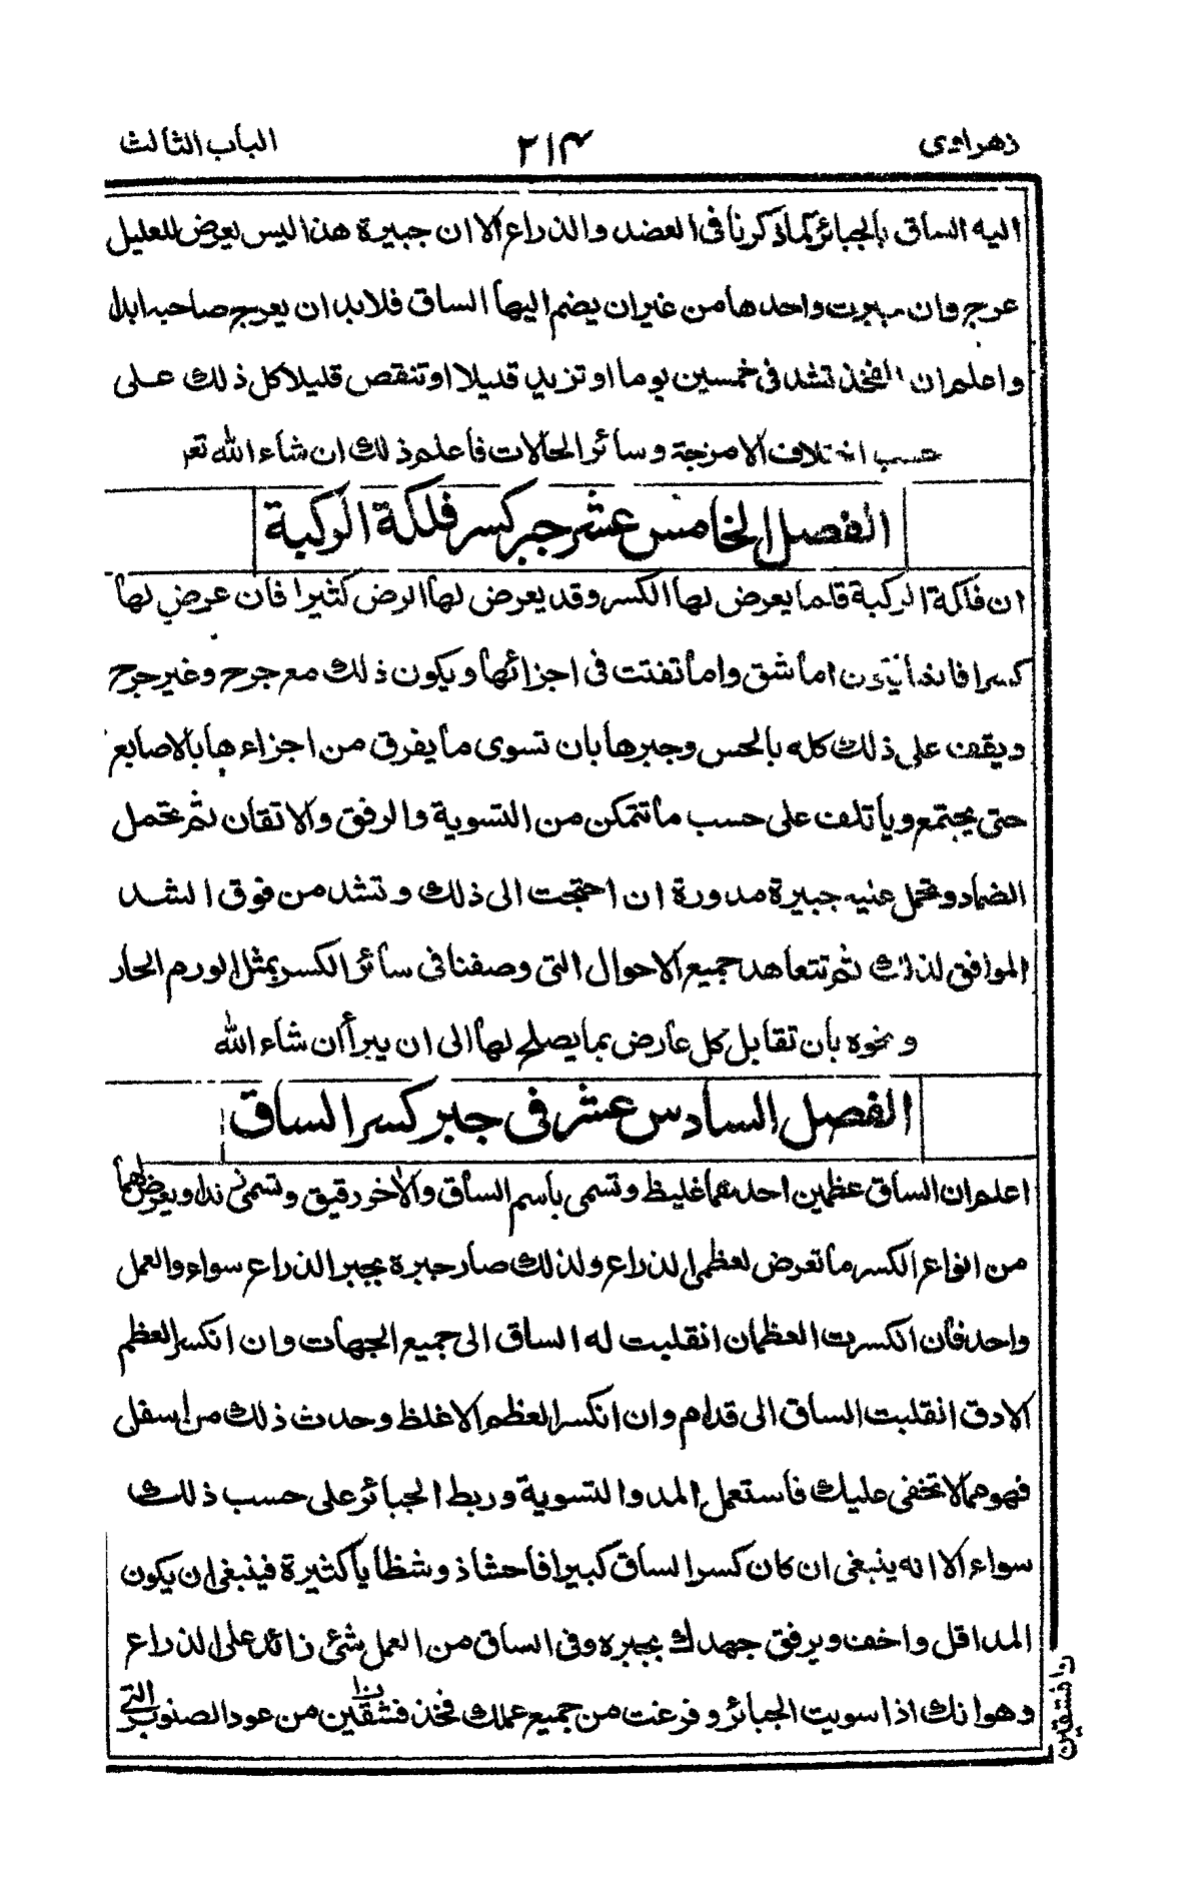 زهراوي ٢١٣ الباب الثالث
اليه الساق بالجبائر كما ذكرنا فى العضد والذراع الا ان جبيرة هذا ليس يعرض للعليل
عرج وان جبرت واحدها من غير ان يضم اليها الساق فلابد ان يعرج صاحبه ابدا
واعلم ان الفخذ تشد فى خمسين يوما او تزيد قليلا او تنقص قليلا كل ذلك على
حسب اختلاف الامزجة وسائر الحالات فاعلم ذلك ان شاء الله تعر
الفصل الخامس عشر جبر كسر فلكة الركبة
ان فلكة الركبة قلما يعرض لها الكسر وقد يعرض لها الرض كثيرا فان عرض لها
كسر فانما يكون اما شق واما تفتت فى اجزائها ويكون ذلك مع جرح وغير جرح
ويقف على ذلك كله بالحس وجبرها بان تسوى ما يفرق من اجزاءها بالاصابع
حتى يجتمع ويأتلف على حسب ما تتمكن من التسوية والرفق والاتقان ثم تحمل
الضماد وتحمل عليه جبيرة مدورة ان احتجت الى ذلك وتشد من فوق الشد
الموافق لذلك ثم تتعاهد جميع الاحوال التى وصفنا فى سائر الكسر بمثل الورم الحار
ونحوه بان تقابل كل عارض بما يصلح لها الى ان يبرأ ان شاء الله
الفصل السادس عشر فى جبر كسر الساق
اعلم ان الساق عظمين احدهما غليظ وتسمى باسم الساق والاخر رقيق وتسمى زندا ويعرض لهما
من انواع الكسر ما تعرض لعظمى الذراع ولذلك صار جبره بجبر الذراع سواء والعمل
واحد فان انكسرت العظمان انقلبت له الساق الى جميع الجهات وان انكسر العظم
الادق انقلبت الساق الى قدام وان انكسر العظم الاغلظ وحدث ذلك من اسفل
فهو مما لا تخفى عليك فاستعمل المد والتسوية وربط الجبائر على حسب ذلك
سواء الا انه ينبغى ان كان كسر الساق كبيرا فاحشا ذو شظايا كثيرة فينبغى ان يكون
المد اقل واخف ويرفق جهدك بجبره وفى الساق من العمل شئ زائد على الذراع
وهو انك اذا سويت الجبائر وفرغت من جميع عملك فخذ فشقين من عود الصنوبر التى
ن